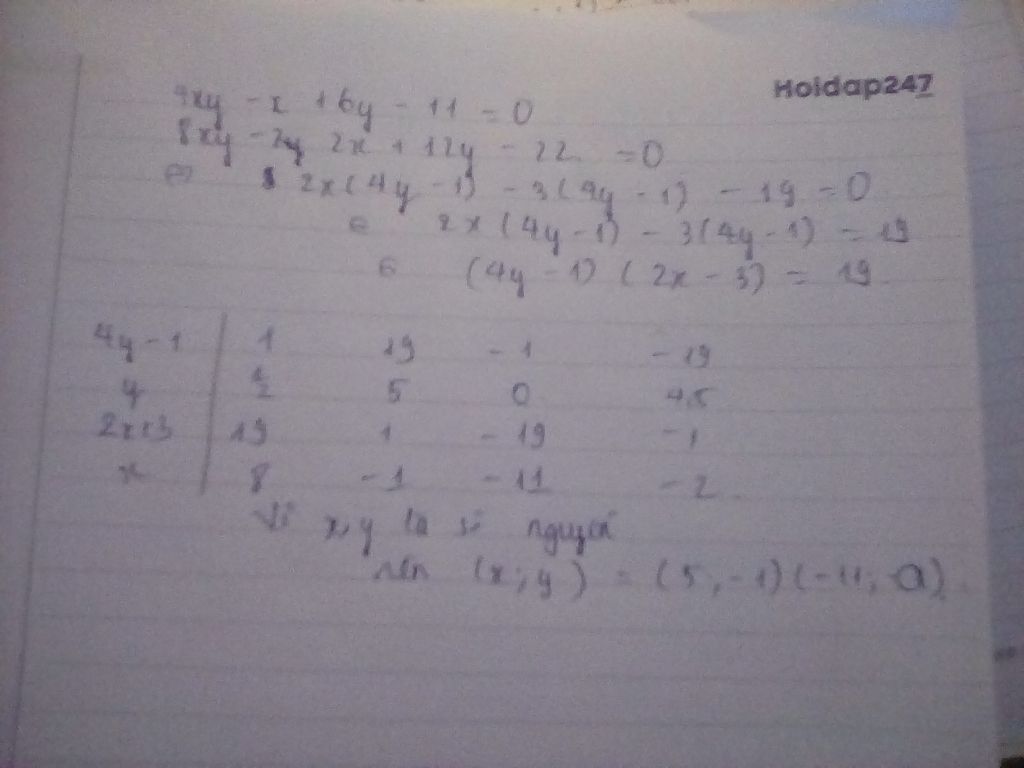 Hoidap247
4xy - x + 6y - 11 = 0
8xy - 2y 2x + 12y - 22 = 0
⇔ 2x(4y - 1) - 3(4y - 1) - 19 = 0
2x(4y - 1) - 3(4y - 1) = 19
(4y - 1)(2x - 3) = 19
4y - 1 1 19 - 1 - 19
y 1/2 5 0 4,5
2x+3 19 1 - 19 - 1
x 8 - 1 - 11 - 2
Vì x,y là số nguyên
nên (x; y) = (5, -1)(-11; 0)